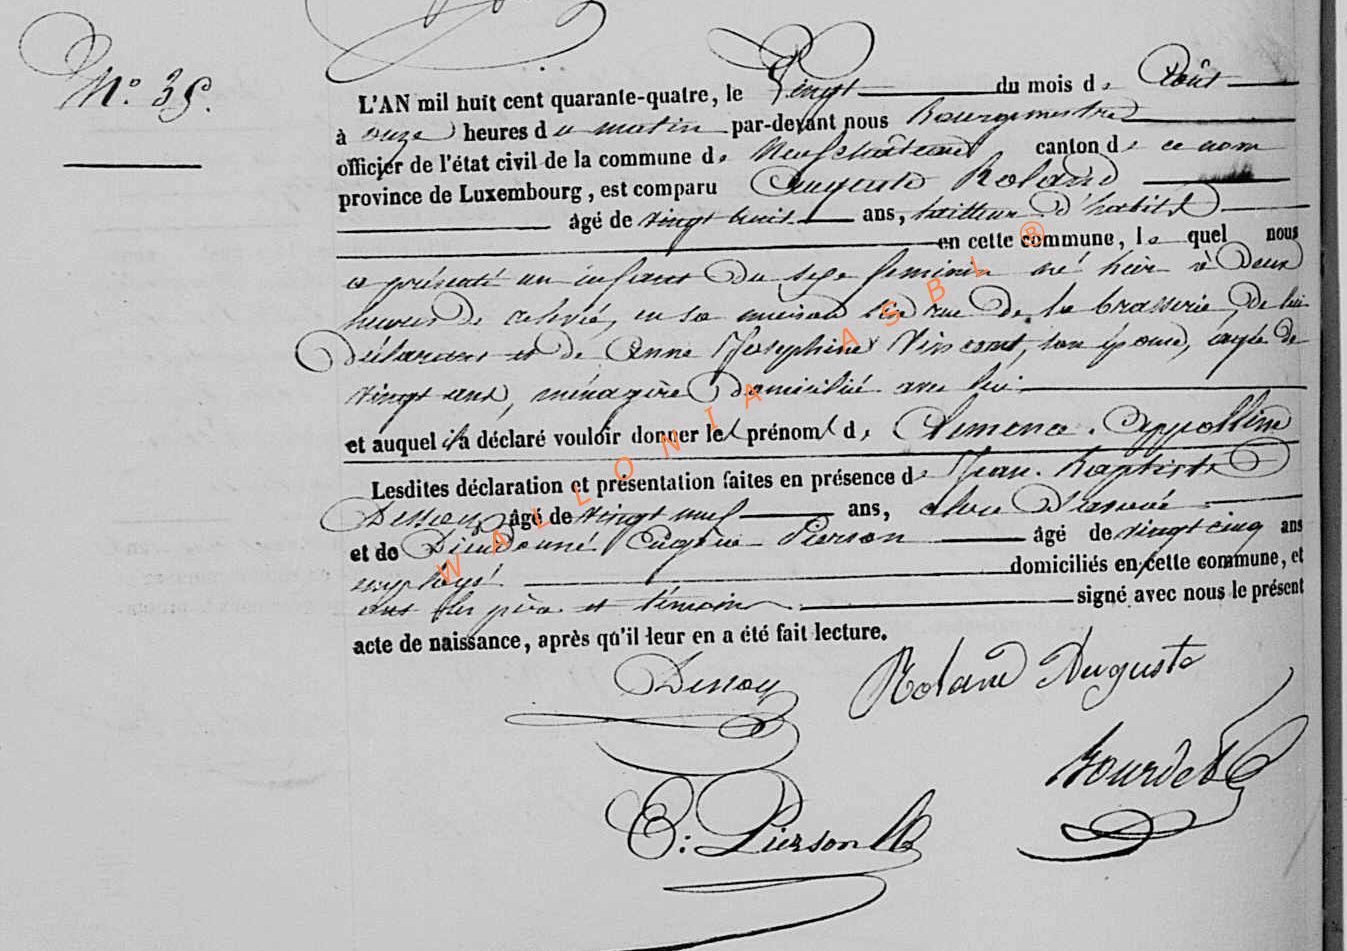 N° 35.
L'AN mil huit cent quarante-quatre, le Vingt du mois d'Août
à onze heures du matin par-devant nous Bourgmestre
officier de l'état civil de la commune de Neufchâteau canton de ce nom
province de Luxembourg, est comparu Auguste Roland
âgé de vingt huit ans, tailleur d'habits
en cette commune, le quel nous
a présenté un enfant du sexe féminin né hier à deux
heures de relevée, en sa maison sise rue de la brasserie, de lui
Déclarant et de Anne Josephine Vincent, son épouse, agée de
vingt ans, ménagère domicilié avec lui
et auquel il a déclaré vouloir donner les prénoms de Climena. Appolline
Lesdites déclaration et présentation faites en présence de Jean. Baptiste
Dessoy, âgé de vingt neuf ans,
et de Dieudonné Eugène Pierson âgé de vingt cinq ans
employé domiciliés en cette commune, et
ont les père et témoins signé avec nous le présent
acte de naissance, après qu'il leur en a été fait lecture.
Dessoy Roland Auguste
E: Pierson
WALLONIA ASBL ®